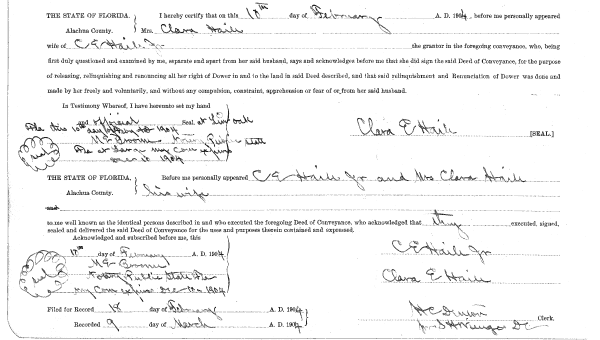 THE STATE OF FLORIDA, I hereby certify that on this 10th day of February A. D. 1904, before me personally appeared
Alachua County. Mrs. Clara Haile
wife of C E Haile Jr the grantor in the foregoing conveyance, who, being
first duly questioned and examined by me, separate and apart from her said husband, says and acknowledges before me that she did sign the said Deed of Conveyance, for the purpose
of releasing, relinquishing and renouncing all her right of Dower in and to the land in said Deed described, and that said relinquishment and Renunciation of Dower was done and
made by her freely and voluntarily, and without any compulsion, constraint, apprehension or fear of or from her said husband.
In Testimony Whereof, I have hereunto set my hand
and official Seal at Live oak
Fla this 10th day of 1904
Clara E Haile [SEAL.]
Notary Public State
Fla at Large my Com expires
Dec 10 1904
THE STATE OF FLORIDA, Before me personally appeared C E Haile Jr and Mrs Clara Haile
Alachua County. his wife
and
to me well known as the identical persons described in and who executed the foregoing Deed of Conveyance, who acknowledged that they executed, signed,
sealed and delivered the said Deed of Conveyance for the uses and purposes therein contained and expressed.
Acknowledged and subscribed before me, this
10th day of February A. D. 1904
C E Haile Jr
Clara E Haile
Notary Public State Fla
my Com expires Dec 10 1904
Filed for Record 18 day of February A. D. 1904
H C Denton Clerk,
Recorded 9 day of March A. D. 1904
D C